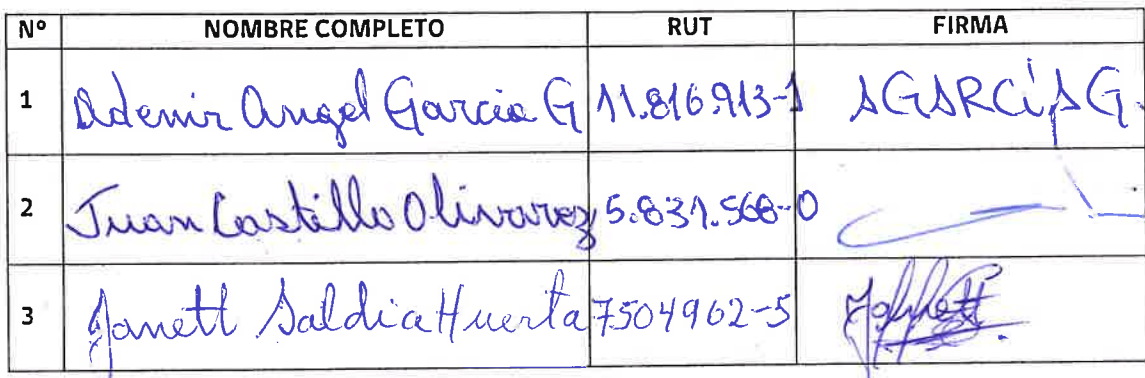 Nº NOMBRE COMPLETO RUT FIRMA
1 Adenir Angel Garcia G 11.816.913-1 AGARCÍAG.
2 Juan Castillo Olivarez 5.831.568-0
3 Janett Saldia Huerta 7504962-5 Janett